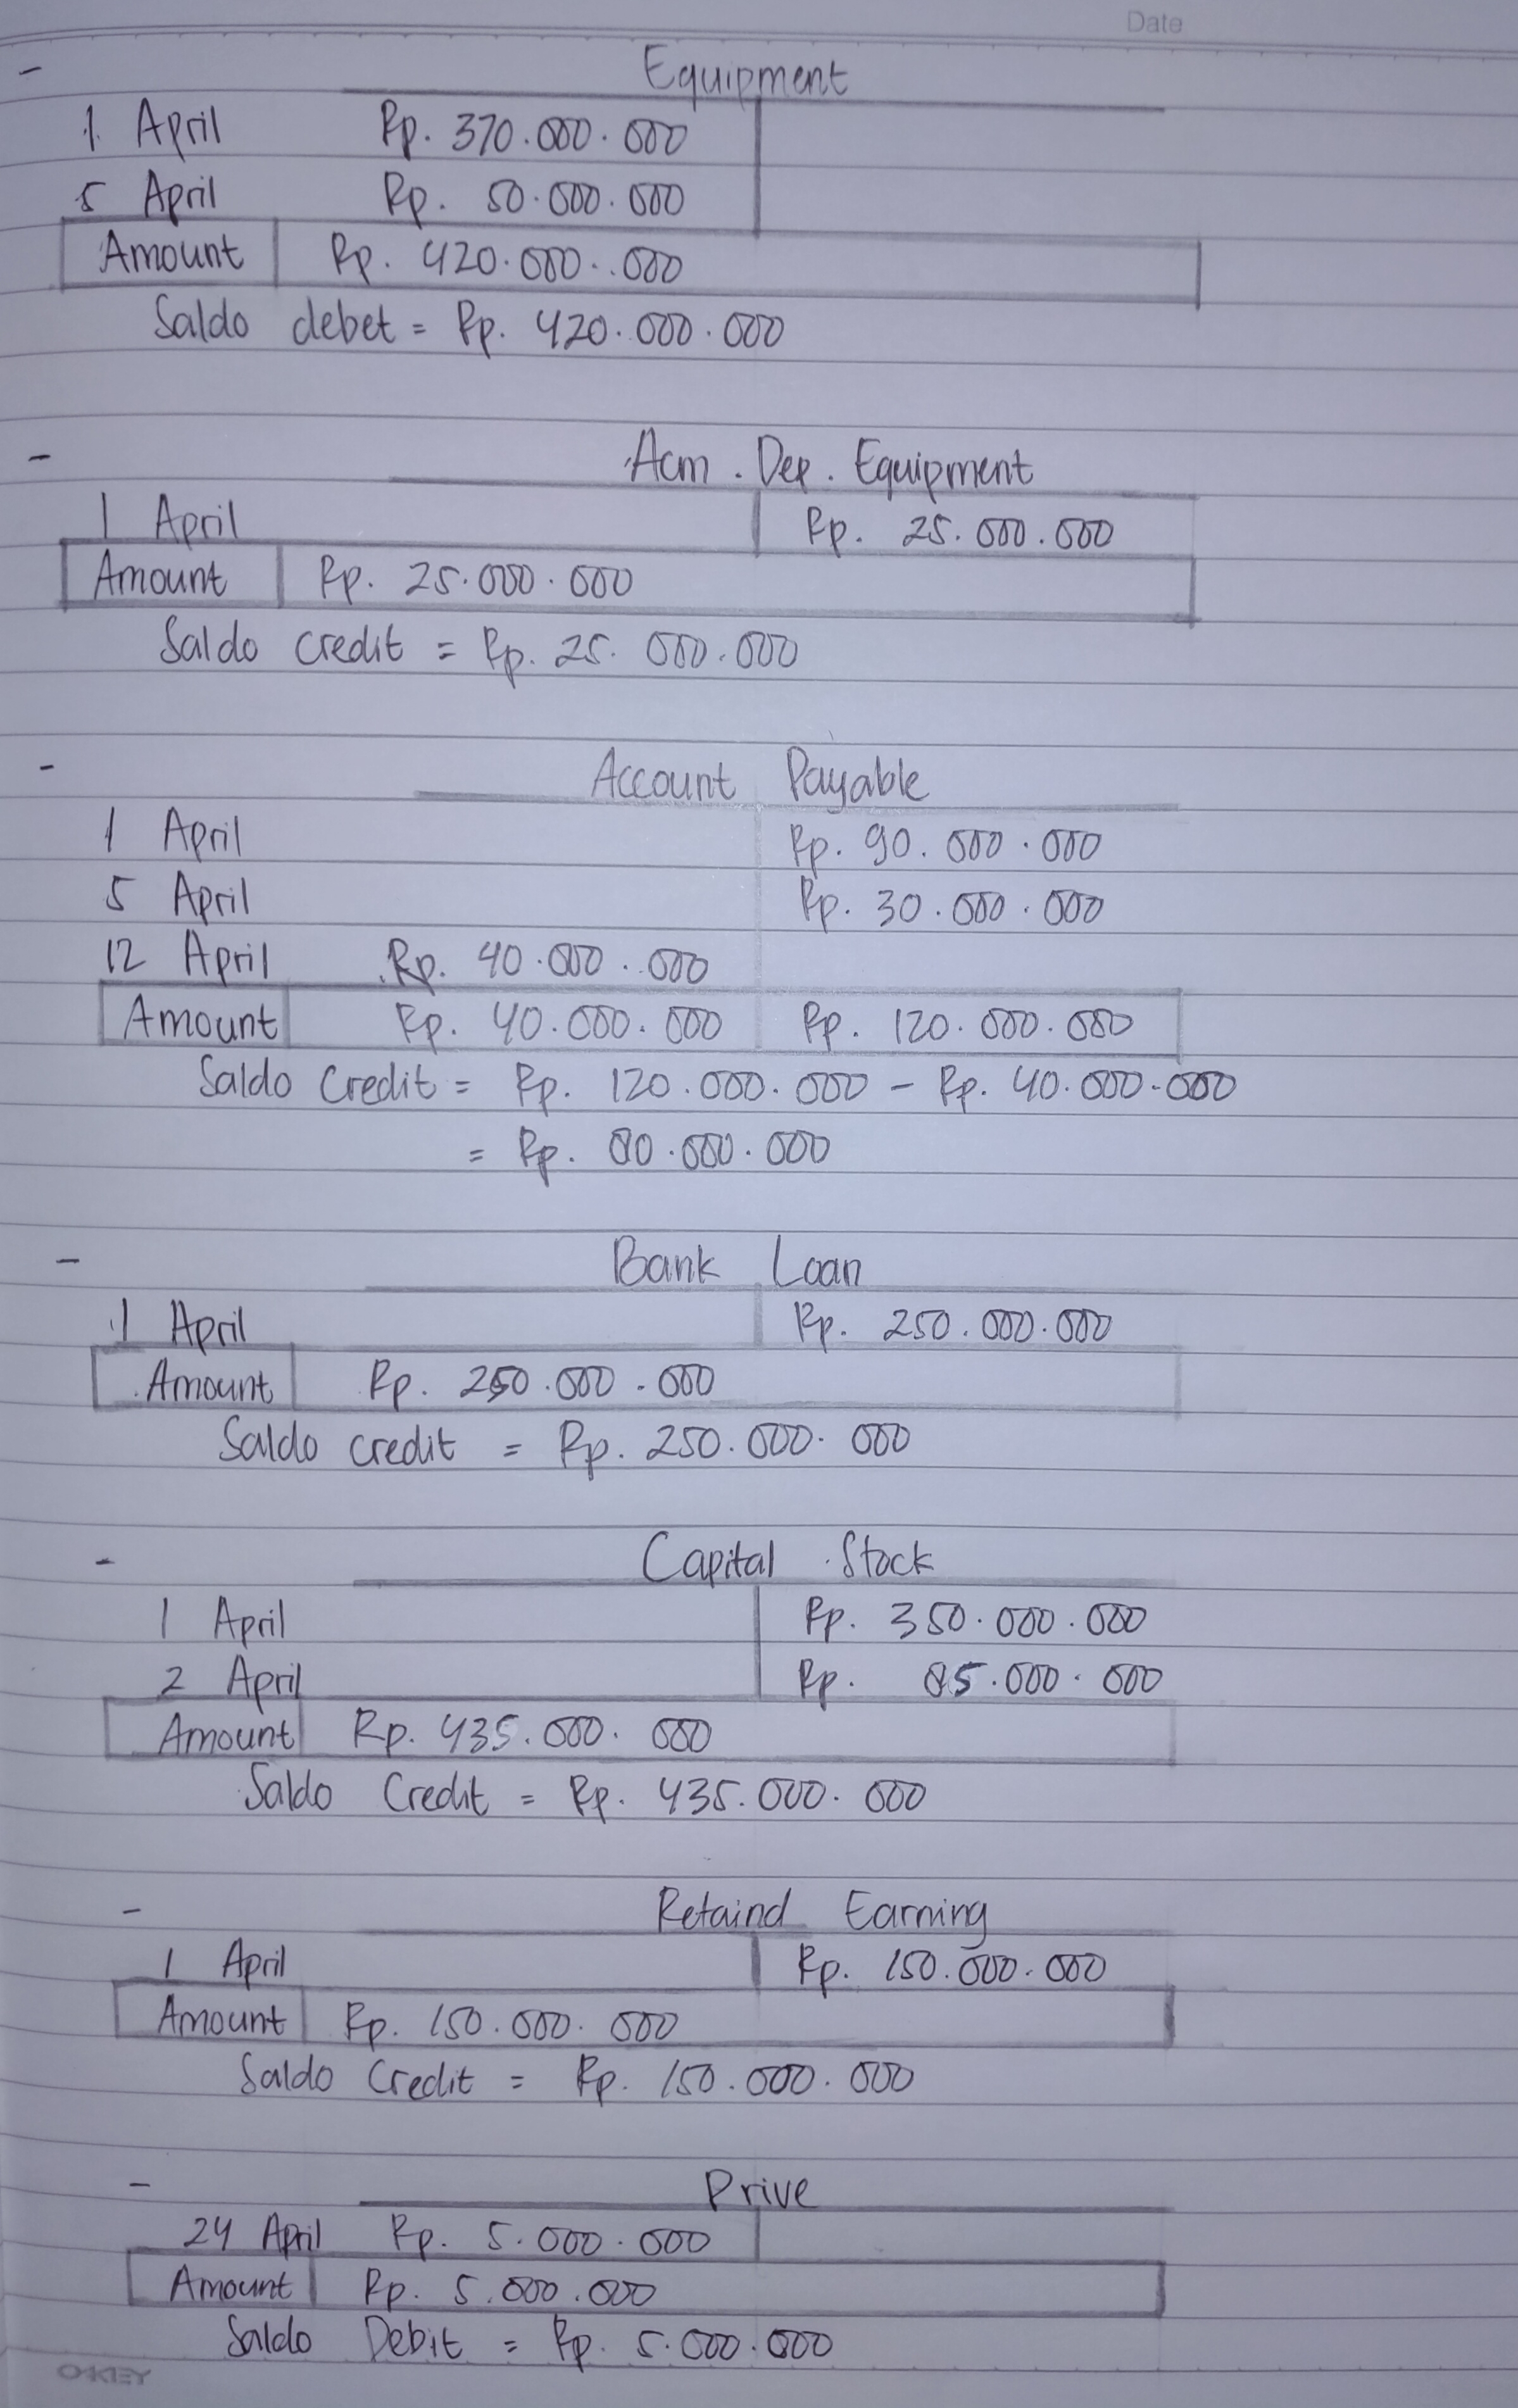 Date
- Equipment
1 April Rp. 370.000.000
5 April Rp. 50.000.000
Amount Rp. 420.000.000
Saldo debet = Rp. 420.000.000
- Acm. Dep. Equipment
1 April Rp. 25.000.000
Amount Rp. 25.000.000
Saldo credit = Rp. 25.000.000
- Account Payable
1 April Rp. 90.000.000
5 April Rp. 30.000.000
12 April Rp. 40.000.000
Amount Rp. 40.000.000 Rp. 120.000.000
Saldo Credit = Rp. 120.000.000 - Rp. 40.000.000
= Rp. 80.000.000
- Bank Loan
1 April Rp. 250.000.000
Amount Rp. 250.000.000
Saldo credit = Rp. 250.000.000
- Capital Stock
1 April Rp. 350.000.000
2 April Rp. 85.000.000
Amount Rp. 435.000.000
Saldo Credit = Rp. 435.000.000
- Retaind Earning
1 April Rp. 150.000.000
Amount Rp. 150.000.000
Saldo Credit = Rp. 150.000.000
- Prive
24 April Rp. 5.000.000
Amount Rp. 5.000.000
Saldo Debit = Rp. 5.000.000
OKEY